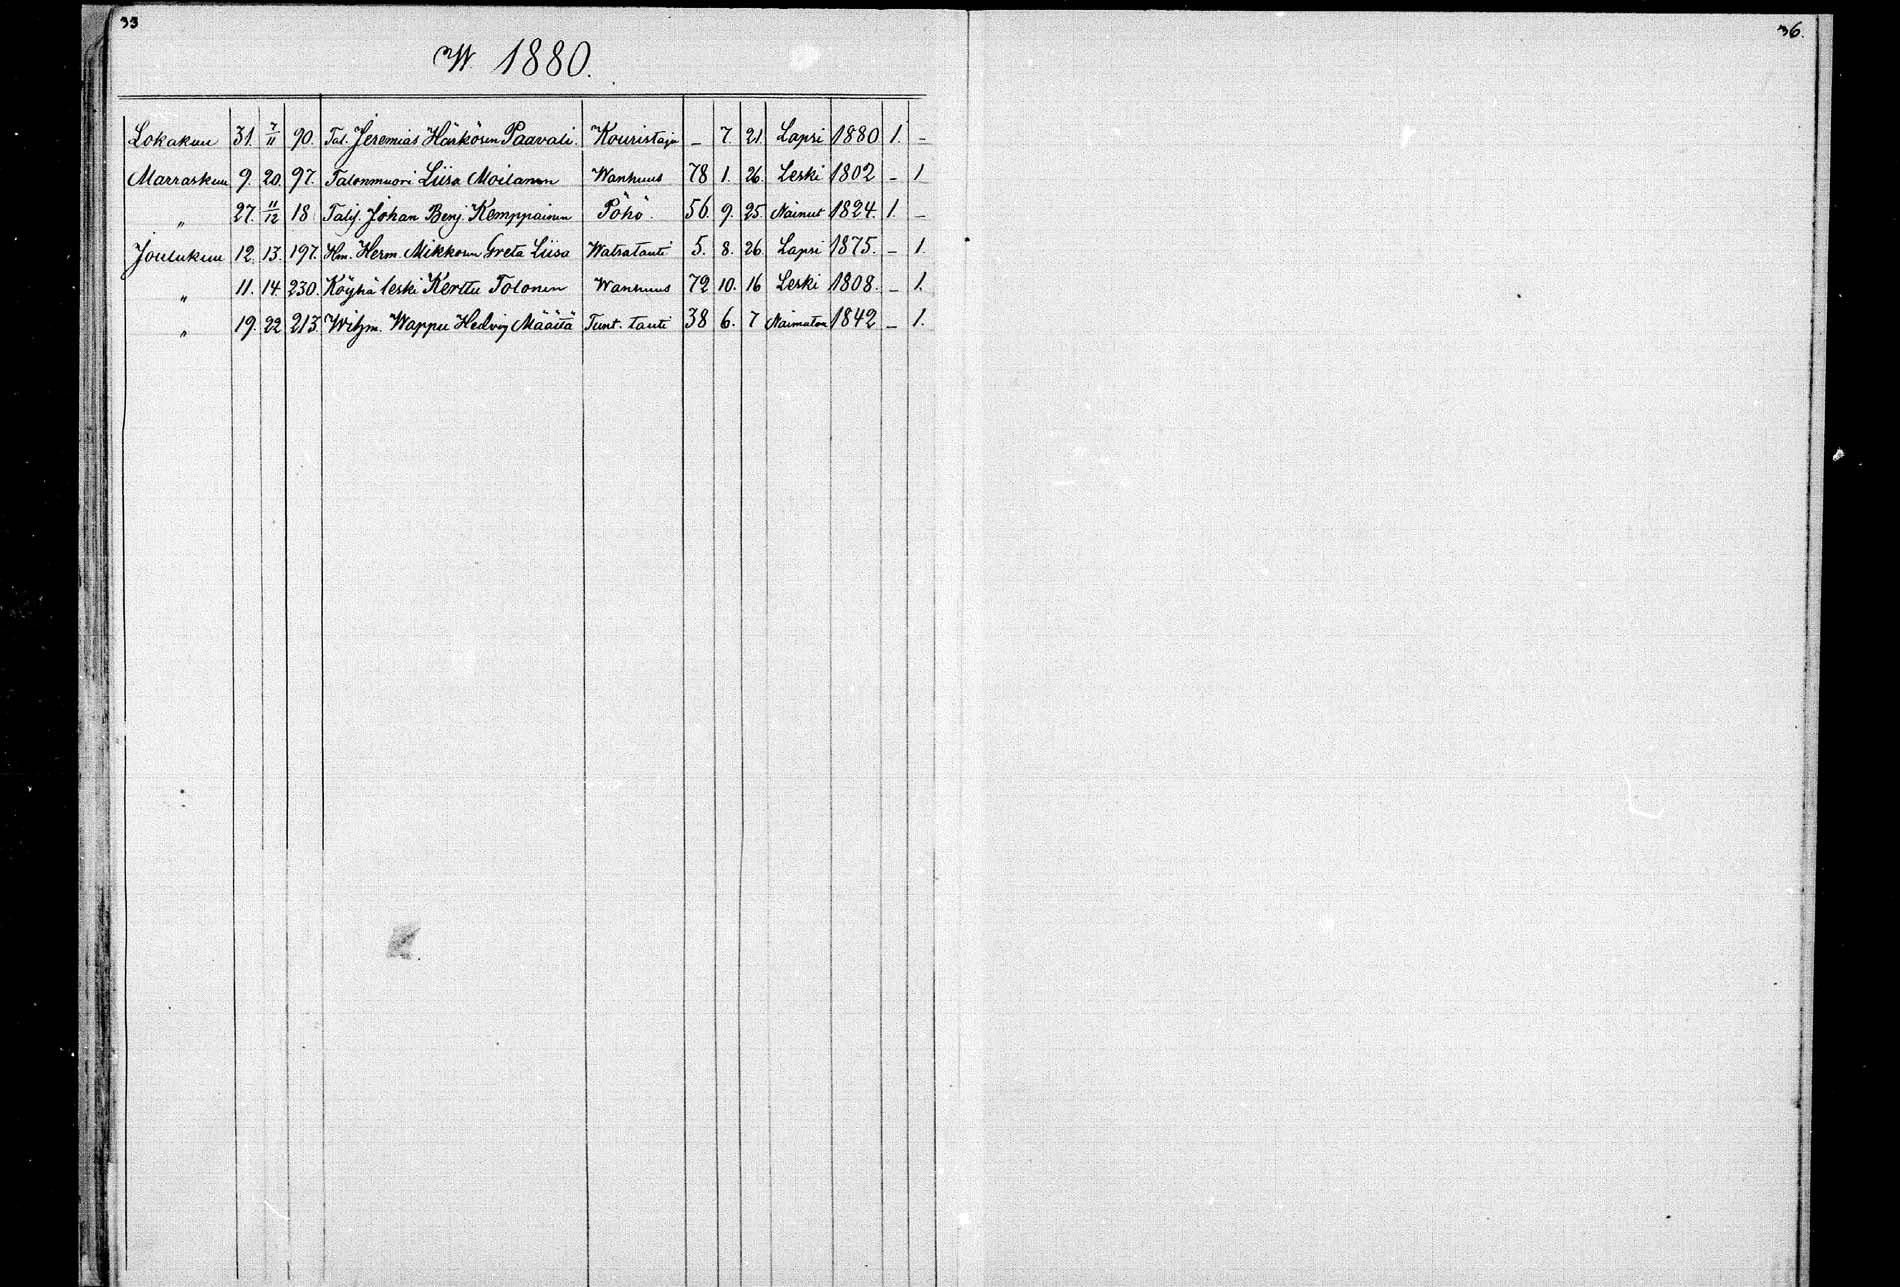 33
36.
W 1880.
Lokakuu 31. 7/11 90. Tal. Jeremias Härkösen Paavali. Kouristaja – 7. 21. Lapsi 1880 1. –
Marraskuu 9. 20. 97. Talonmuori Liisa Moilanen Wanhuus 78 1. 26. Leski 1802 – 1
„ 27. 11/12 18 Talij. Johan Benj. Kemppainen Pöhö. 56. 9. 25 Nainut 1824. 1. –
Joulukuu 12. 13. 197. Hm. Herm. Mikkosen Greta Liisa Watsatauti 5. 8. 26 Lapsi 1875. – 1.
„ 11. 14. 230. Köyhä leski Kerttu Tolonen Wanhuus 72 10. 16 Leski 1808. – 1.
„ 19. 22 213. Wihm. Wappu Hedvig Määttä Tunt. tauti 38 6. 7 Naimaton 1842 – 1.